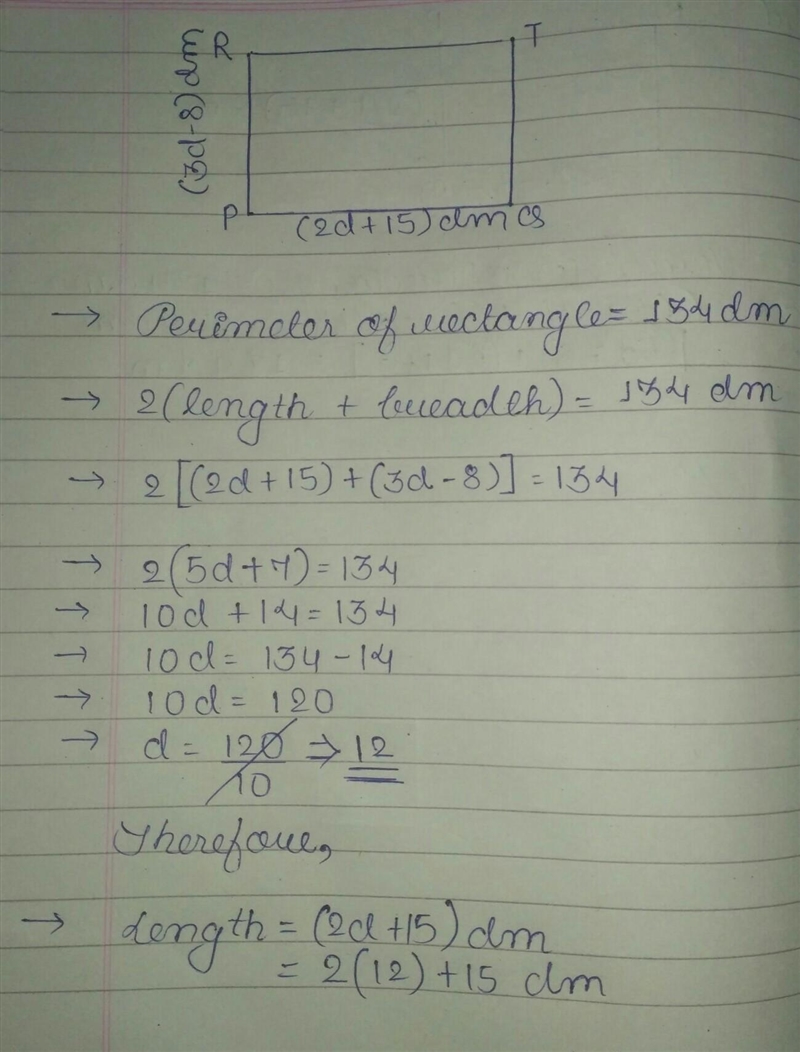 R T
(3d-8) dm
P (2d+15) dm Q
→ Perimeter of rectangle = 134 dm
→ 2(length + breadth) = 134 dm
→ 2[(2d+15)+(3d-8)] = 134
→ 2(5d+7) = 134
→ 10d + 14 = 134
→ 10d = 134 - 14
→ 10d = 120
→ d = 120/10 ⇒ 12
Therefore,
→ Length = (2d+15) dm
= 2(12) + 15 dm